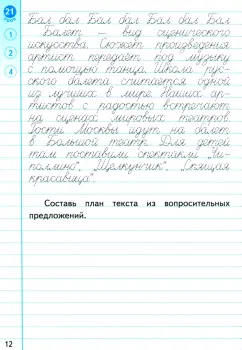 21
Бал бал Бал бал Бал бал Бал
1
Балет – вид сценического
искусства. Сюжет произведения
2
артист передаёт под музыку
4
с помощью танца. Школа рус-
ского балета считается одной
из лучших в мире. Наших ар-
тистов с радостью встречают
на сценах мировых театров.
Гости Москвы идут на балет
в Большой театр. Для детей
там поставили спектакли "Чи-
поллино", "Щелкунчик", "Спящая
красавица".
Составь план текста из вопросительных
предложений.
12